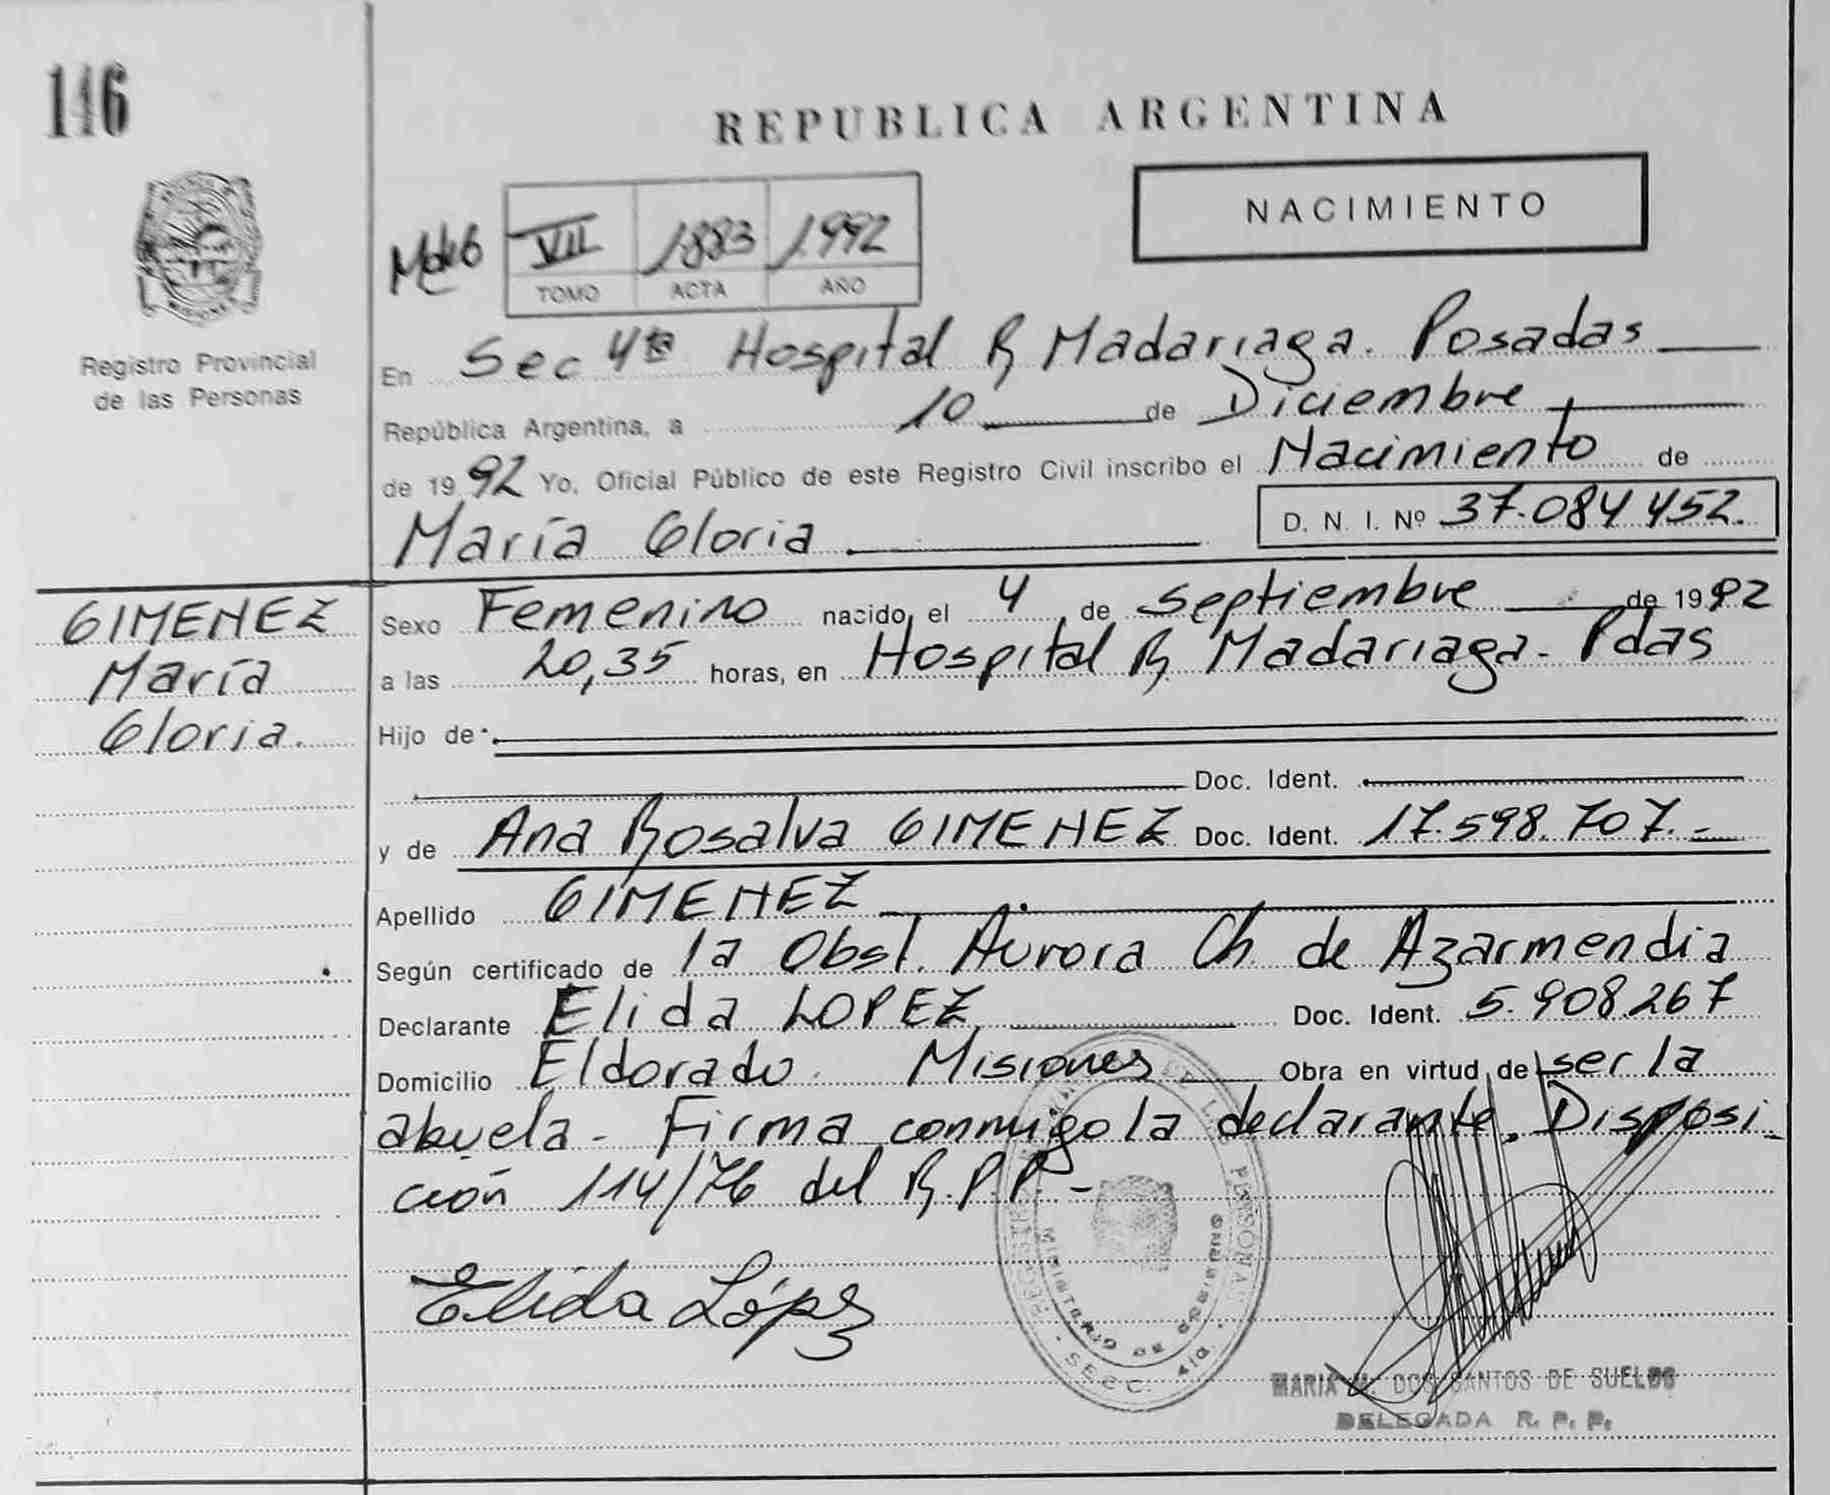 146
REPUBLICA ARGENTINA
NACIMIENTO
VII 1883 1992
TOMO ACTA AÑO
Registro Provincial
de las Personas
En Sec 4ta Hospital R Madariaga. Posadas
República Argentina, a 10 de Diciembre
de 1992 Yo, Oficial Público de este Registro Civil inscribo el Nacimiento de
María Gloria D. N. I. Nº 37.084 452.
GIMENEZ
María
Gloria.
Sexo Femenino nacido el 4 de Septiembre de 1992
a las 20,35 horas, en Hospital R Madariaga - Pdas
Hijo de
Doc. Ident.
y de Ana Rosalva GIMENEZ Doc. Ident. 17.598.707.-
Apellido GIMENEZ
Según certificado de la Obst. Aurora Ch. de Azarmendia
Declarante Elida LOPEZ Doc. Ident. 5.908.267
Domicilio Eldorado. Misiones Obra en virtud de ser la
abuela - Firma conmigo la declarante. Disposi-
ción 114/76 del R.P.P. -
Elida López
MINISTERIO DE GOBIERNO
SECC. 4ta.
MARIA DOS SANTOS DE SUELDO
DELEGADA R. P. P.